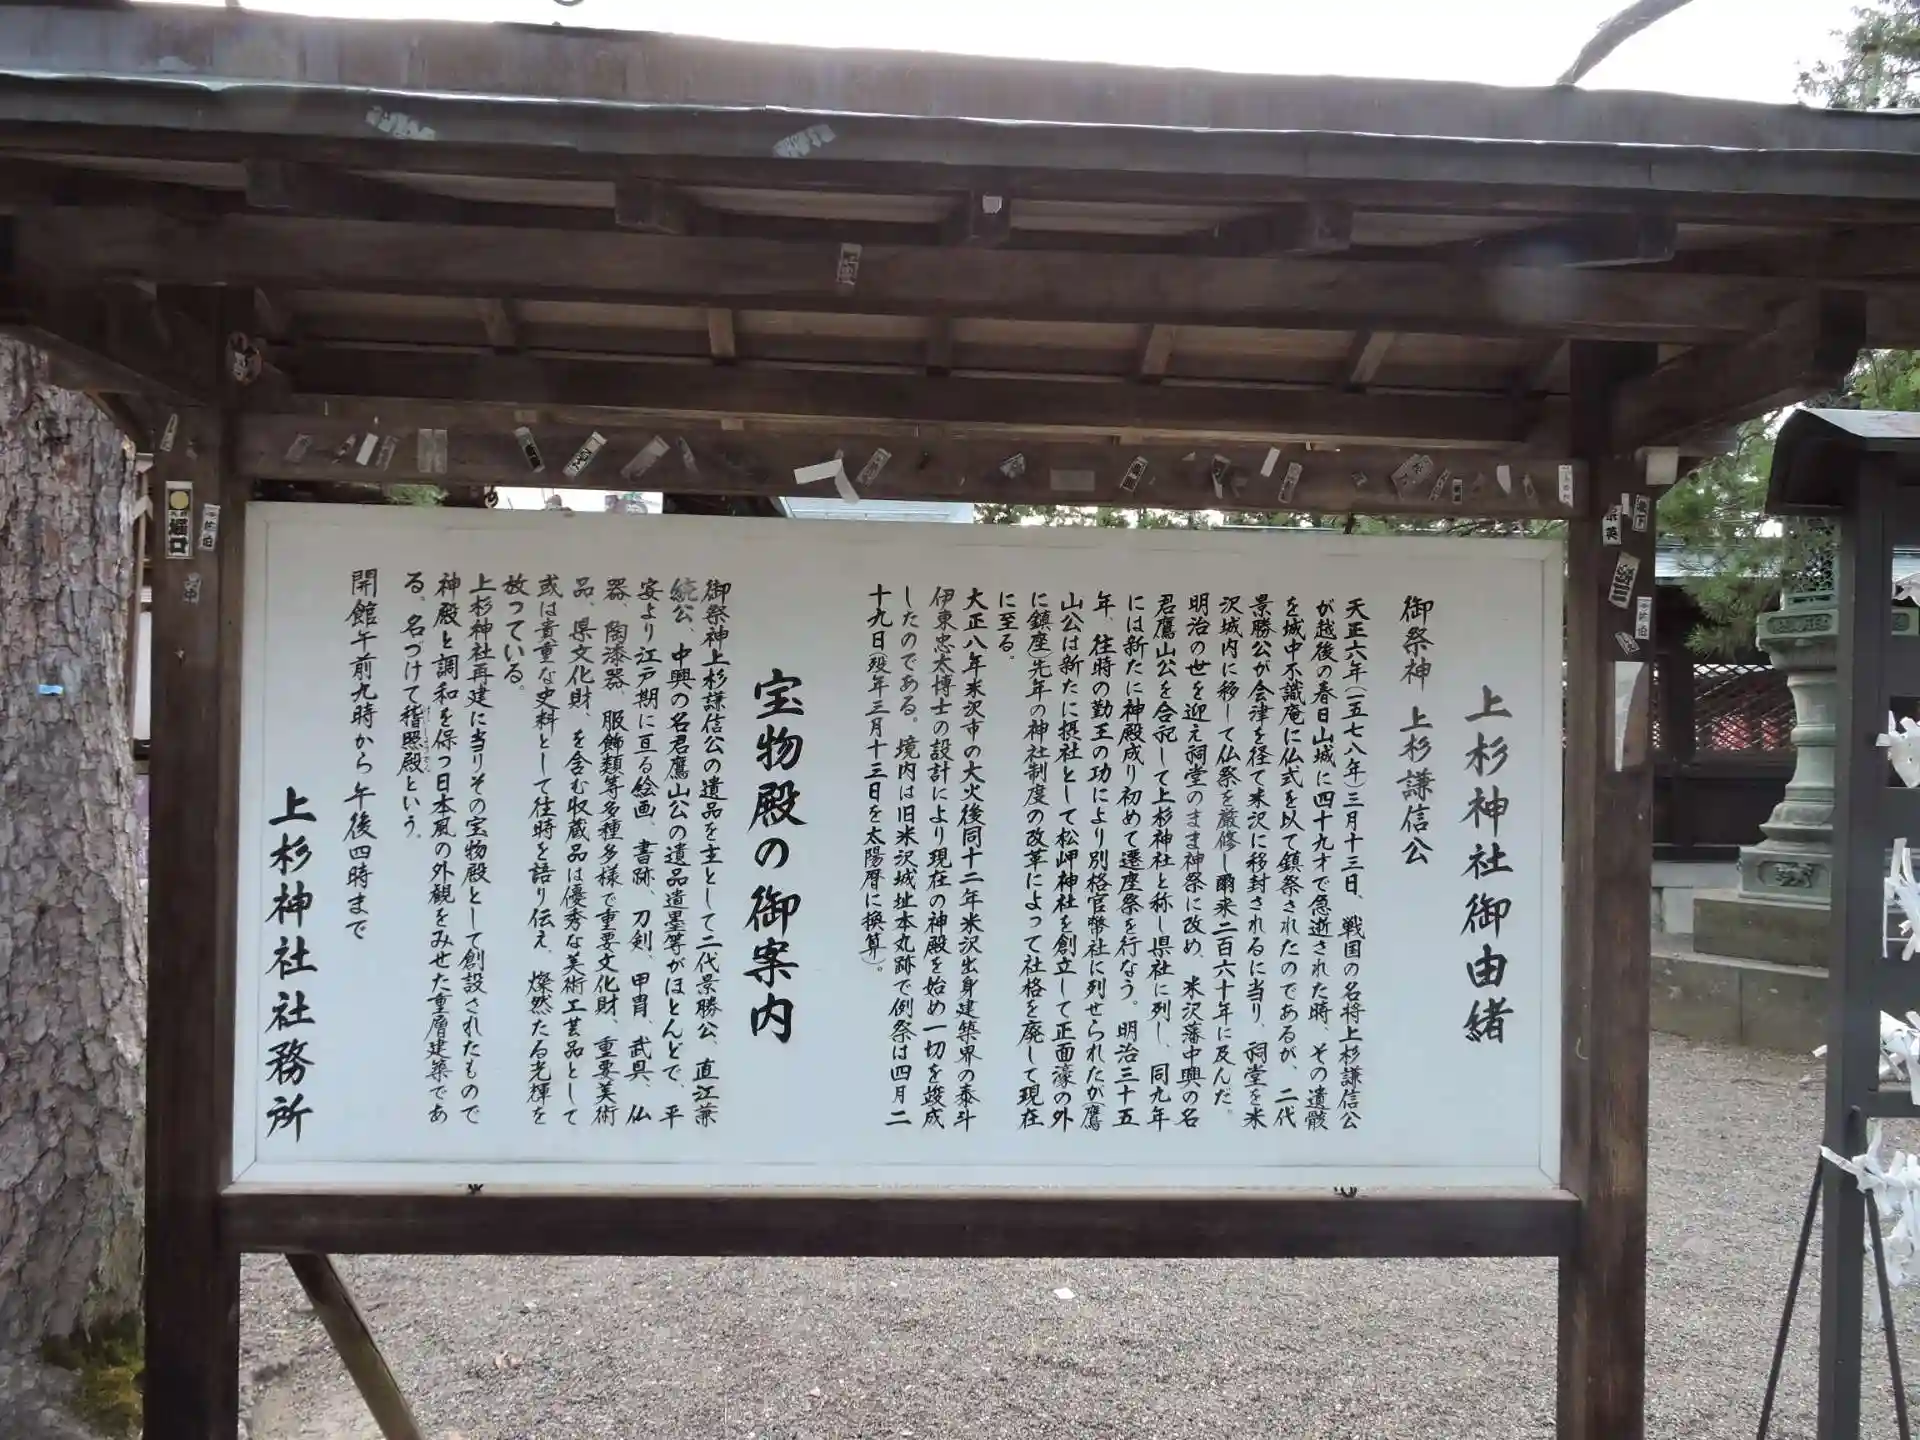 上杉神社御由緒
御祭神 上杉謙信公
天正六年(一五七八年)三月十三日、戦国の名将上杉謙信公
が越後の春日山城に四十九才で急逝された時、その遺骸
を城中不識庵に仏式を以て鎮祭されたのであるが、二代
景勝公が会津を径て米沢に移封されるに当り、祠堂を米
沢城内に移して仏祭を厳修し爾来二百六十年に及んだ。
明治の世を迎え祠堂のまま神祭に改め、米沢藩中興の名
君鷹山公を合祀して上杉神社と称し県社に列し、同九年
には新たに神殿成り初めて遷座祭を行なう。明治三十五
年、往時の勤王の功により別格官幣社に列せられたが(鷹
山公は新たに摂社として松岬神社を創立して正面濠の外
に鎮座)先年の神社制度の改革によって社格を廃して現在
に至る。
大正八年米沢市の大火後同十二年米沢出身建築界の泰斗
伊東忠太博士の設計により現在の神殿を始め一切を竣成
したのである。境内は旧米沢城址本丸跡で例祭は四月二
十九日(歿年三月十三日を太陽暦に換算)。
宝物殿の御案内
御祭神上杉謙信公の遺品を主として二代景勝公、直江兼
続公、中興の名君鷹山公の遺品遺墨等がほとんどで、平
安より江戸期に亘る絵画、書跡、刀剣、甲冑、武具、仏
器、陶漆器、服飾類等多種多様で重要文化財、重要美術
品、県文化財、を含む収蔵品は優秀な美術工芸品として
或は貴重な史料として往時を語り伝え、燦然たる光輝を
放つている。
上杉神社再建に当りその宝物殿として創設されたもので
神殿と調和を保つ日本風の外観をみせた重層建築であ
る。名づけて稽照殿という。
開館午前九時から午後四時まで
上杉神社社務所
堀口